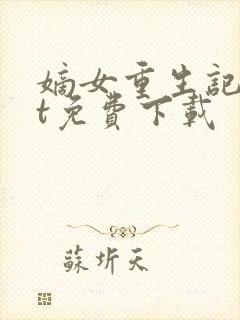 嫡女重生記
t免費下載
蘇圻天